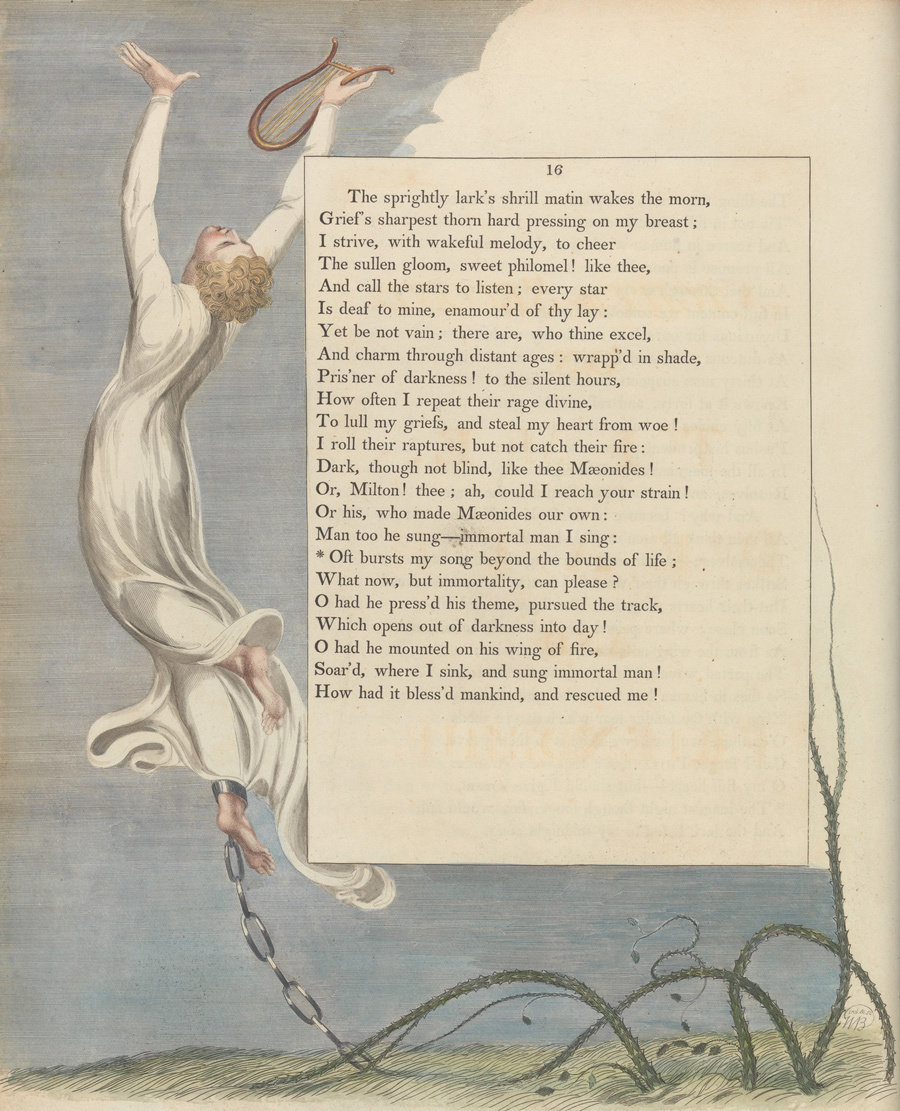 16
The sprightly lark's shrill matin wakes the morn,
Grief's sharpest thorn hard pressing on my breast;
I strive, with wakeful melody, to cheer
The sullen gloom, sweet philomel! like thee,
And call the stars to listen; every star
Is deaf to mine, enamour'd of thy lay:
Yet be not vain; there are, who thine excel,
And charm through distant ages: wrapp'd in shade,
Pris'ner of darkness! to the silent hours,
How often I repeat their rage divine,
To lull my griefs, and steal my heart from woe!
I roll their raptures, but not catch their fire:
Dark, though not blind, like thee Mæonides!
Or, Milton! thee; ah, could I reach your strain!
Or his, who made Mæonides our own:
Man too he sung—immortal man I sing:
* Oft bursts my song beyond the bounds of life;
What now, but immortality, can please?
O had he press'd his theme, pursued the track,
Which opens out of darkness into day!
O had he mounted on his wing of fire,
Soar'd, where I sink, and sung immortal man!
How had it bless'd mankind, and rescued me!